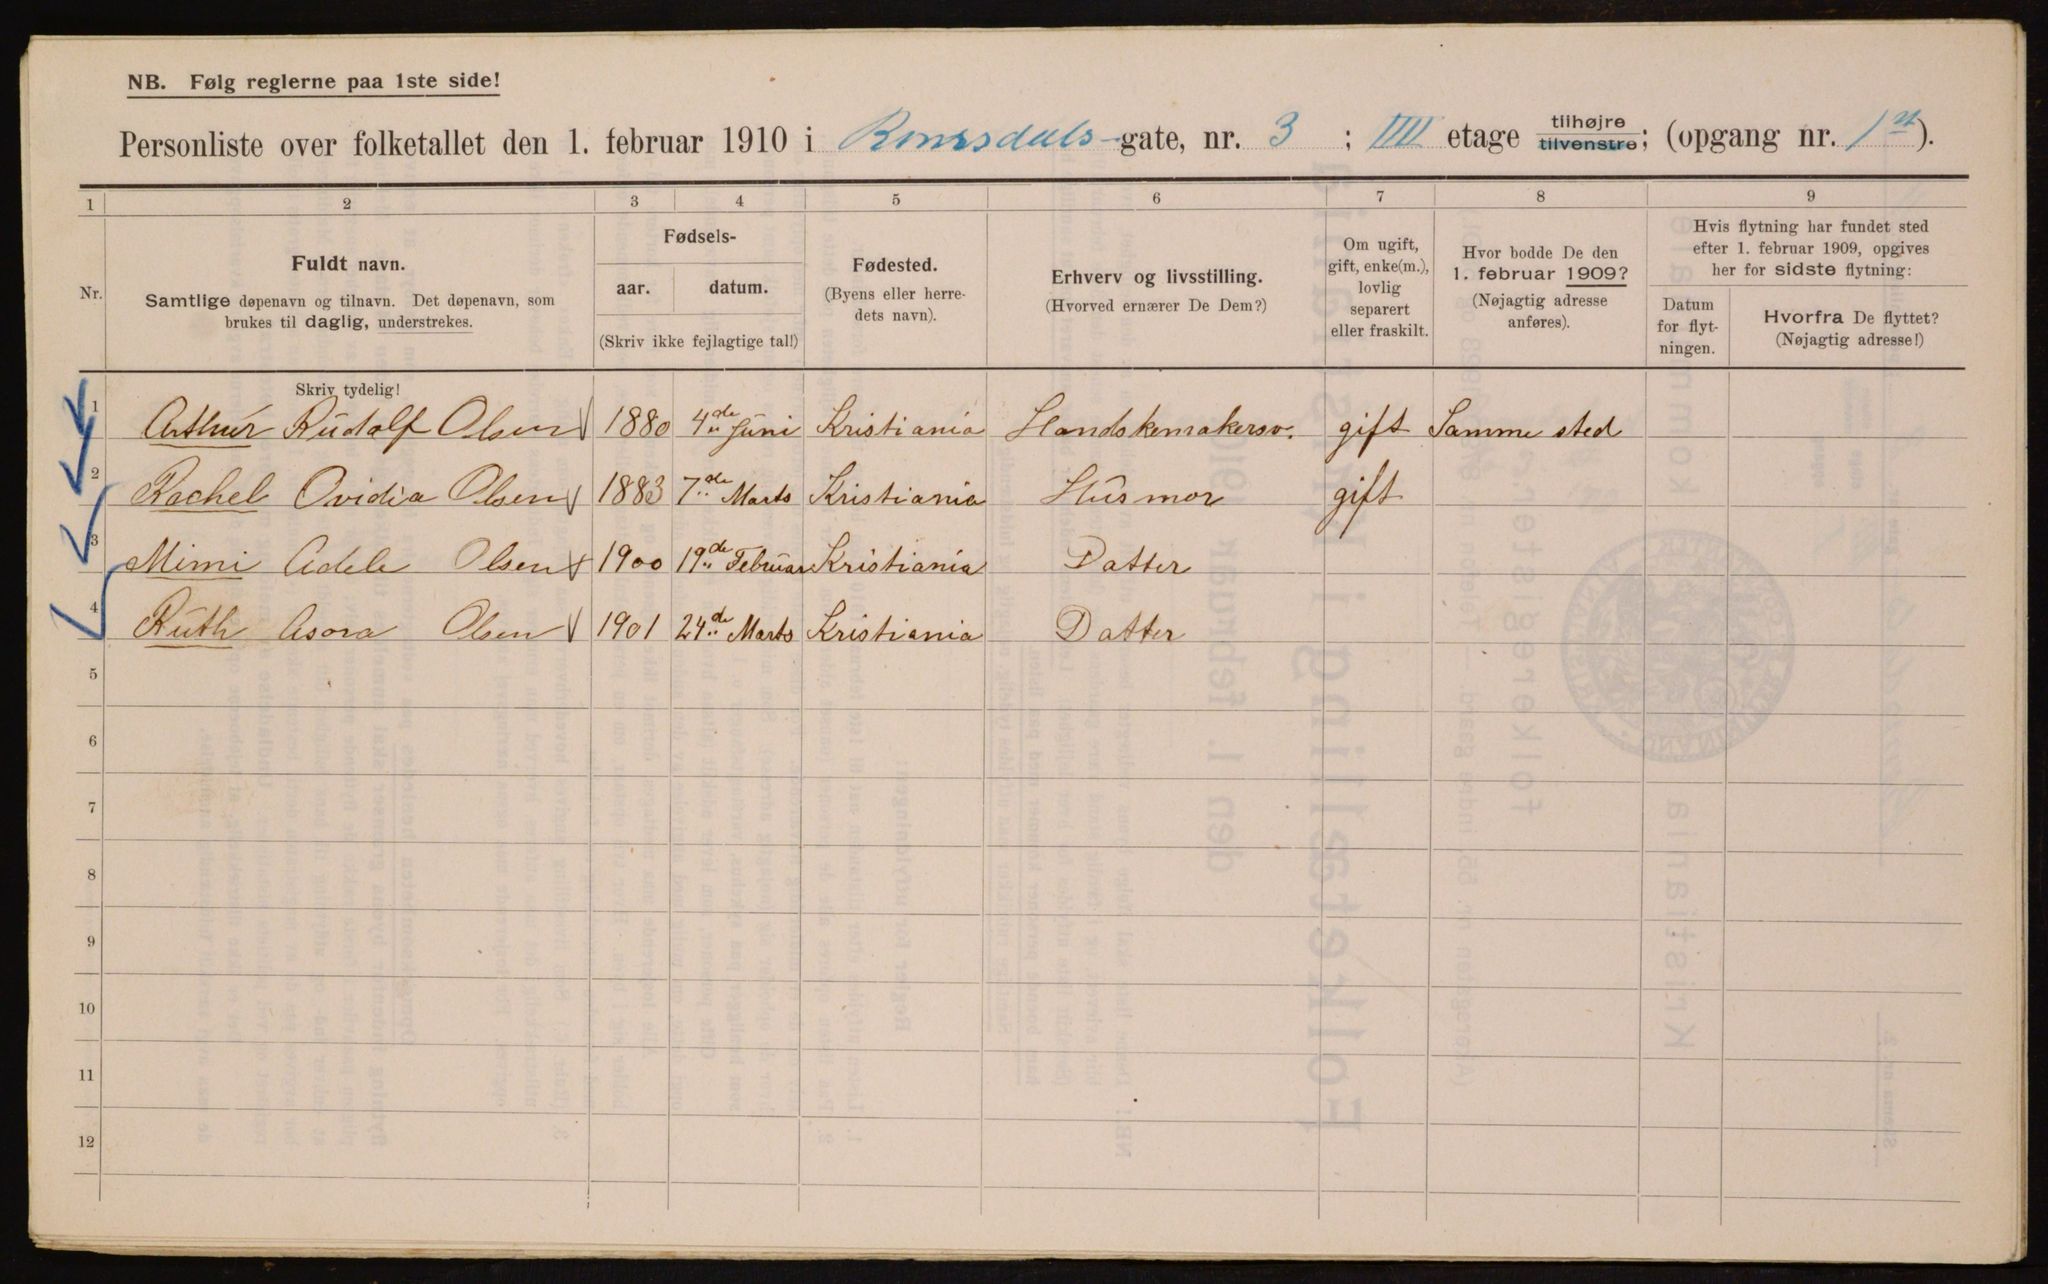 NB. Følg reglerne paa 1ste side!
Personliste over folketallet den 1. februar 1910 i Romsdals-gate, nr. 3; IIII etage tilhøjre tilvenstre; (opgang nr. 1st).
1 2 3 4 5 6 7 8 9
Nr.
Fuldt navn.
Samtlige døpenavn og tilnavn. Det døpenavn, som
brukes til daglig, understrekes.
Fødsels-
aar. datum.
(Skriv ikke fejlagtige tal!)
Fødested.
(Byens eller herre-
dets navn).
Erhverv og livsstilling.
(Hvorved ernærer De Dem?)
Om ugift,
gift, enke(m.),
lovlig
separert
eller fraskilt.
Hvor bodde De den
1. februar 1909?
(Nøjagtig adresse
anføres).
Hvis flytning har fundet sted
efter 1. februar 1909, opgives
her for sidste flytning:
Datum
for flyt-
ningen.
Hvorfra De flyttet?
(Nøjagtig adresse!)
Skriv tydelig!
1 Arthur Rudolf Olsen 1880 4de Juni Kristiania Handskemakersv. gift Samme sted
2 Rachel Ovidia Olsen 1883 7de Marts Kristiania Husmor gift
3 Mimi Adele Olsen 1900 19de Februar Kristiania Datter
4 Ruth Asora Olsen 1901 24de Marts Kristiania Datter
5
6
7
8
9
10
11
12